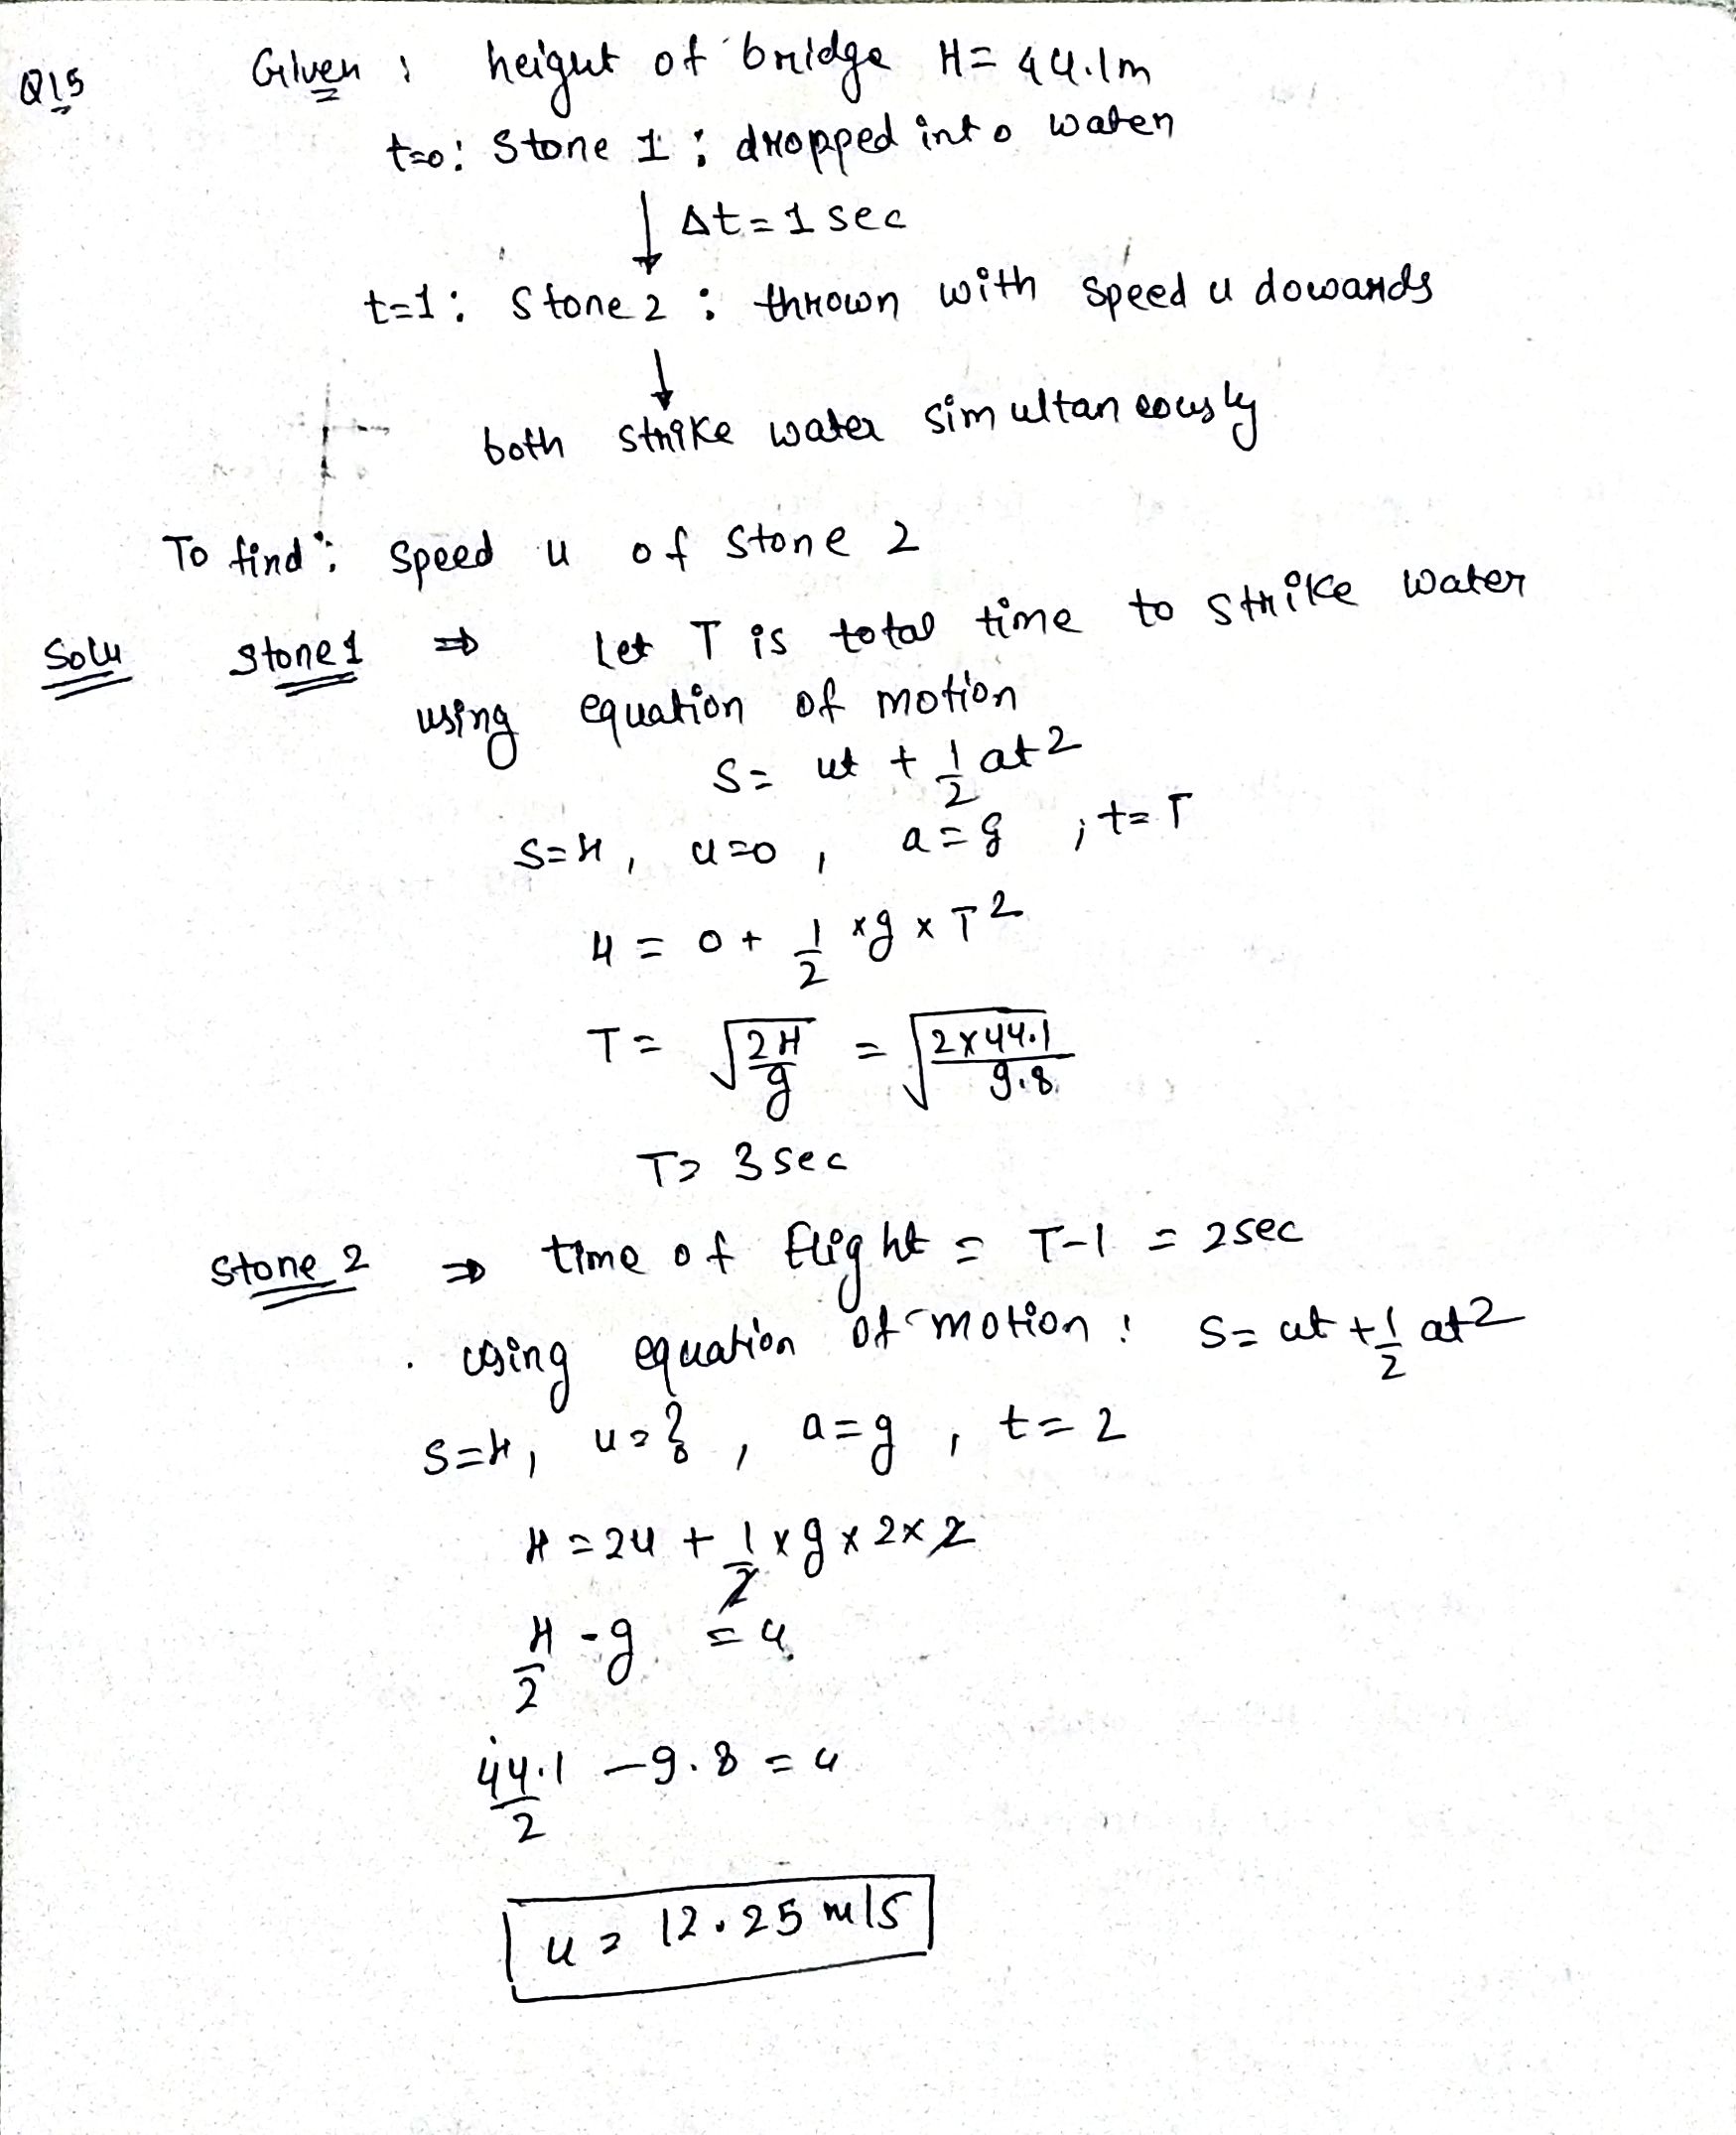 Q15 Given : height of bridge H = 44.1m
t=0: Stone 1 : dropped into water
↓ Δt = 1 sec
t=1 : Stone 2 : thrown with speed u dowards
↓
both strike water simultaneously
To find : speed u of stone 2
Solu stone 1 ⇒ Let T is total time to strike water
using equation of motion
S = ut + 1/2 at^2
S=H, u=0, a=g ; t=T
H = 0 + 1/2 × g × T^2
T = √(2H/g) = √(2×44.1/9.8)
T = 3 sec
Stone 2 ⇒ time of flight = T-1 = 2sec
using equation of motion : S = ut + 1/2 at^2
S=H, u=?, a=g, t=2
H = 2u + 1/2 × g × 2×2
H/2 - g = u
44.1/2 - 9.8 = u
u = 12.25 m/s